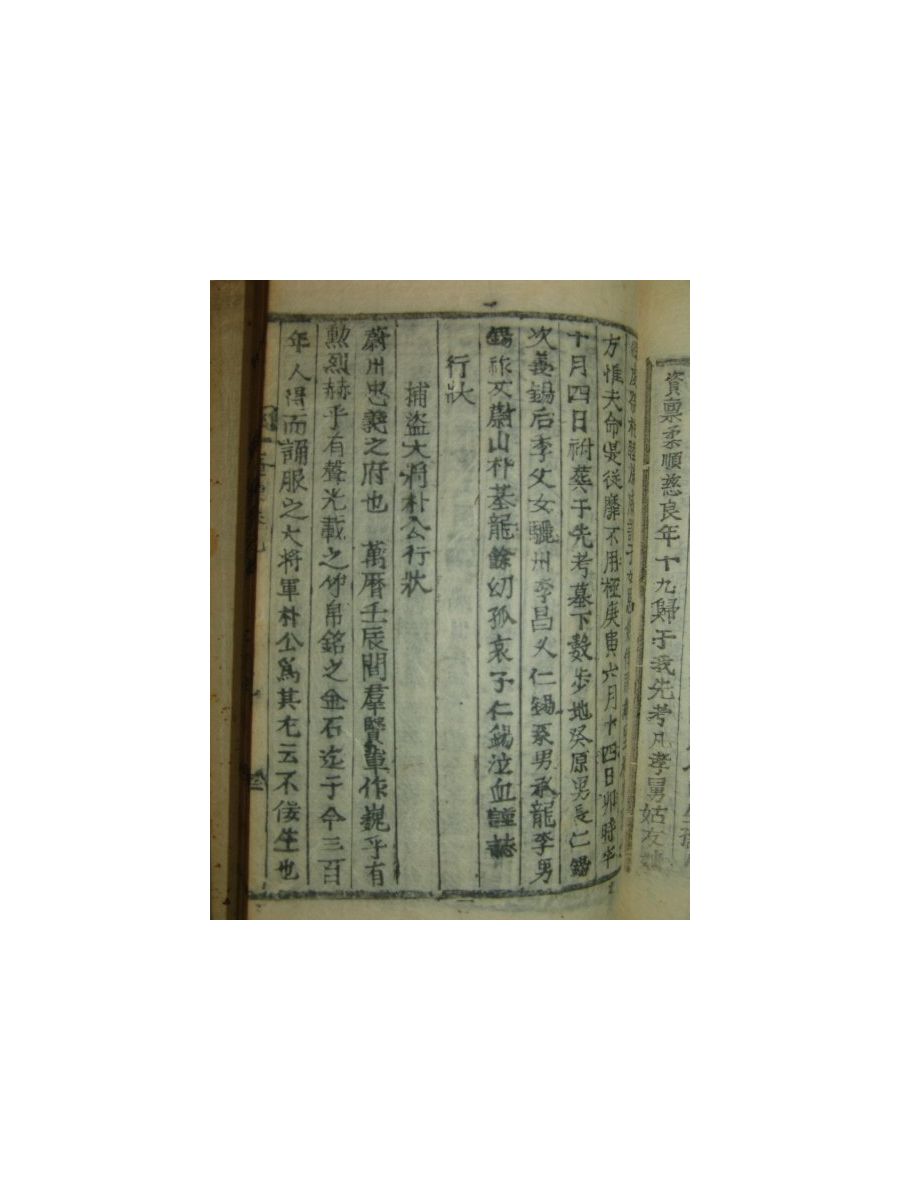 資稟柔順慈良年十九歸于我先考凡孝舅姑友
方惟夫命是從靡不用極庚寅六月十四日卯時卒
十月四日祔葬于先考墓下數步地癸原男長仁錫
次義錫后李父女驪州李昌久仁錫系男承龍李男
錫祚女蔚山朴基龍餘幼孤哀子仁錫泣血謹誌
行狀
捕盜大將朴公行狀
蔚州忠義之府也 萬曆壬辰間羣賢輩作巍乎有
勲烈赫乎有聲光載之竹帛銘之金石迄于今三百
年人得而誦服之大將軍朴公爲其尤云不佞生也